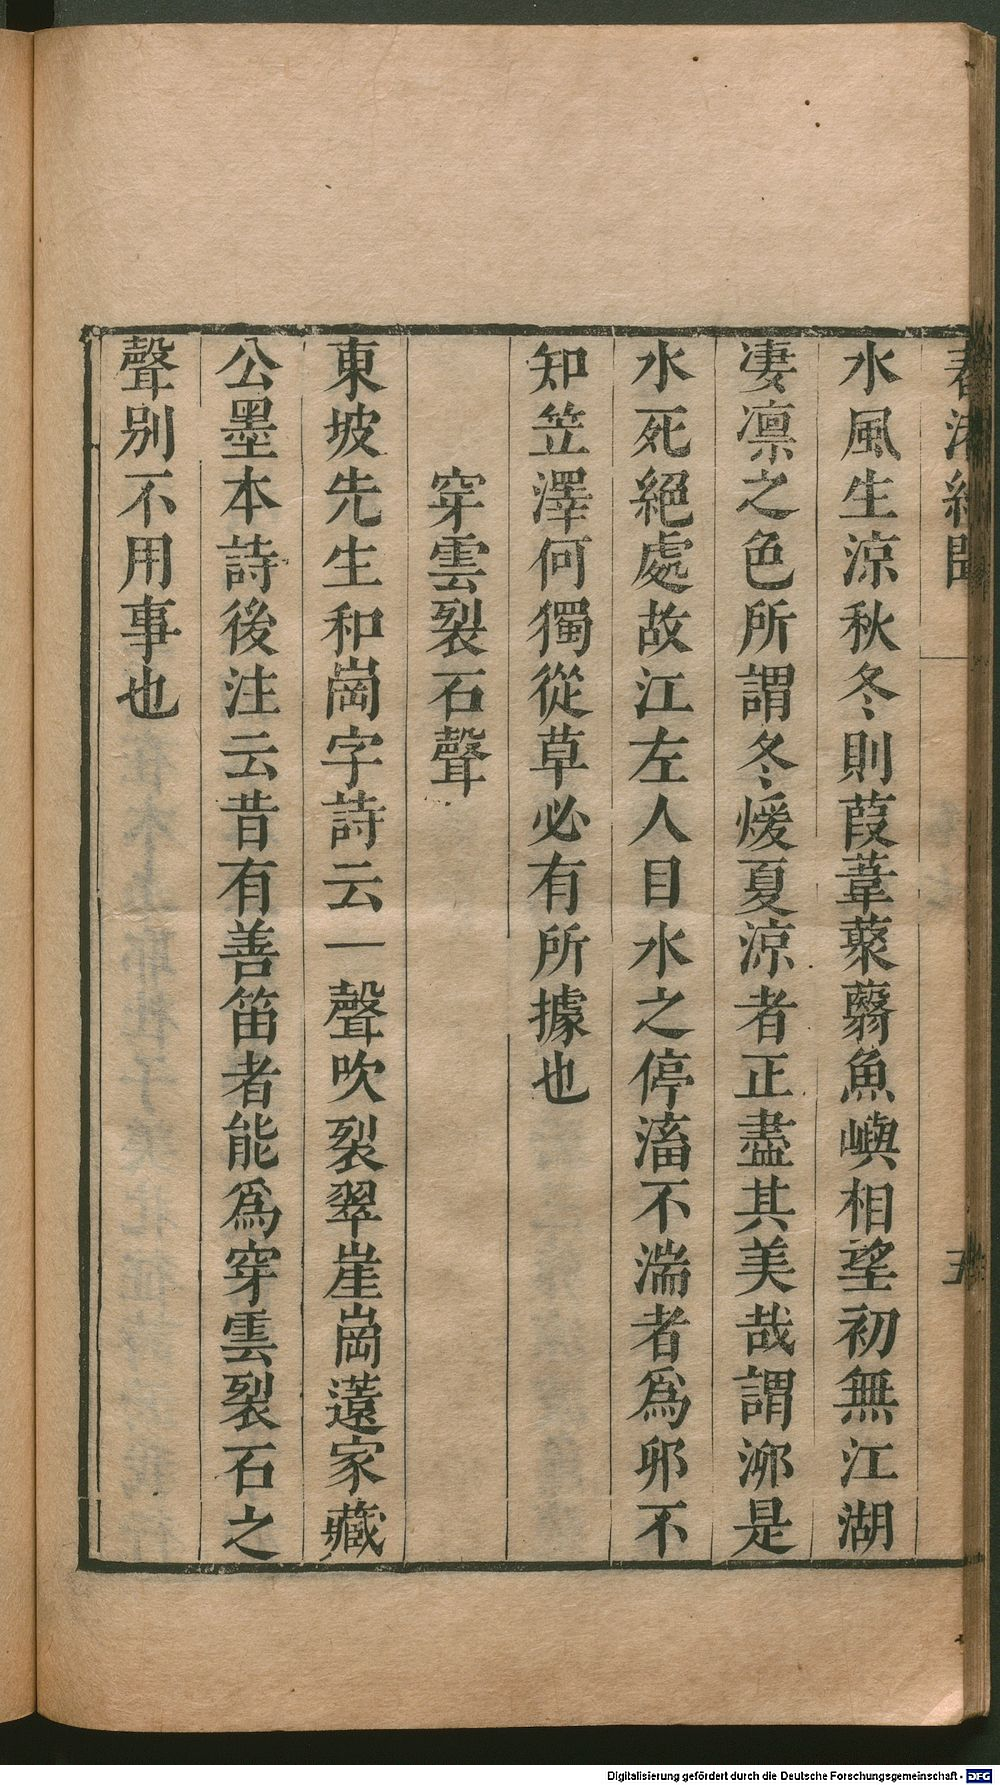 春渚紀聞
五
水風生涼秋冬則葭葦藂蘙魚嶼相望初無江湖
凄凛之色所謂冬煖夏涼者正盡其美哉謂泖是
水死絕處故江左人目水之停滀不湍者為泖不
知笠澤何獨從草必有所據也
穿雲裂石聲
東坡先生和崗字詩云一聲吹裂翠崖崗薳家藏
公墨本詩後注云昔有善笛者能為穿雲裂石之
聲別不用事也
Digitalisierung gefördert durch die Deutsche Forschungsgemeinschaft - DFG